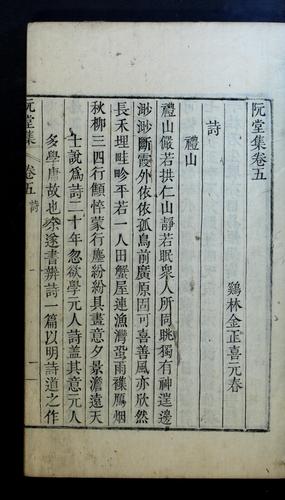 阮堂集卷五
鷄林金正喜元春
詩
禮山
禮山儼若拱仁山靜若眠衆人所同眺獨有神𨓹邊
渺渺斷霞外依依孤鳥前廣原固可喜善風亦欣然
長禾埋畦畛平若一人田蟹屋連漁灣蛩雨襍鴈烟
秋柳三四行顦悴蒙行塵紛紛具畫意夕景澹遠天
士說爲詩二十年忽欲學元人詩盖其意元人
多學唐故也余遂書辨詩一篇以明詩道之作
阮堂集 卷五 詩